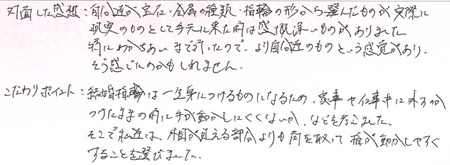 対面した感想：自分達が宝石・金属の種類・指輪の形から選んだものが実際に
現実のものとして手元に来た時は感慨深いものがありました。
特にわかちあいまで行ったので、より自分達のものという感覚があり、
そう感じたのかもしれません。
こだわりポイント：結婚指輪は一生身につけるものになるため、家事や仕事中に
つけたままの時に手が動かしにくくないか、などを考えました。
そこで私達は、不相が見える部分よりも間を取って指が動かしやすく
することを選びました。